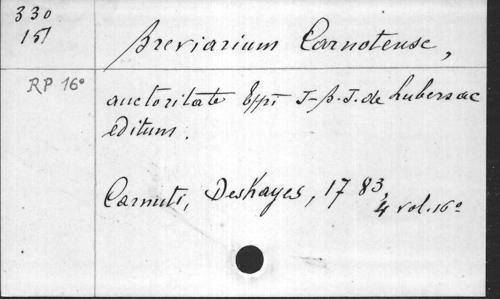 330
151
Breviarium Carnotense,
RP 16°
auctoritate Eppi J-B.J. de Lubersac
editum.
Carnuti, Deshayes, 1783,
4 vol. 16°